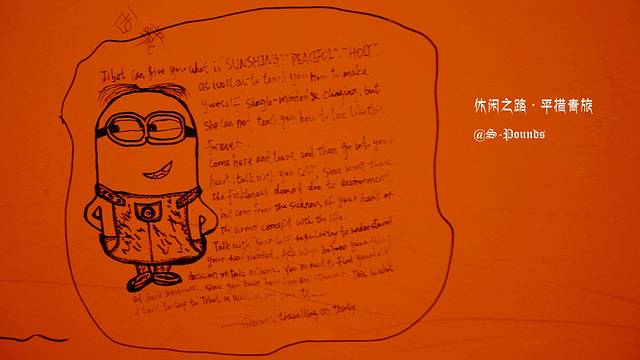 Tibet can give you what is "SUNSHING" "PEACEFUL" "HOLY".
as well as to teach you how to make
yourself single-minded & clinging, but
she can not teach you how to live like this
forever.
come here and leave, and then go into your
heart, talk with yourself. Since most times
the fickleness doesn't due to environment,
but come from the sickness of your heart or
the wrong concept with the life.
Talk with yourself regularly to understand
your real needed. Ask why before you
decision or take actions. You no need to find yourself
at here anymore since you have been This is what
I want to say to Tibet as well as
travelling on the
休闲之路·平措青旅
@S-Pounds